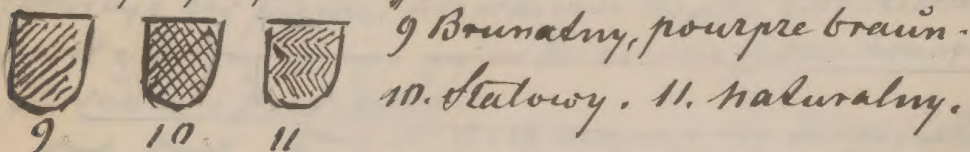 9 Brunatny, pourpre braun.
10. Stalowy. 11. naturalny.
9. 10 11